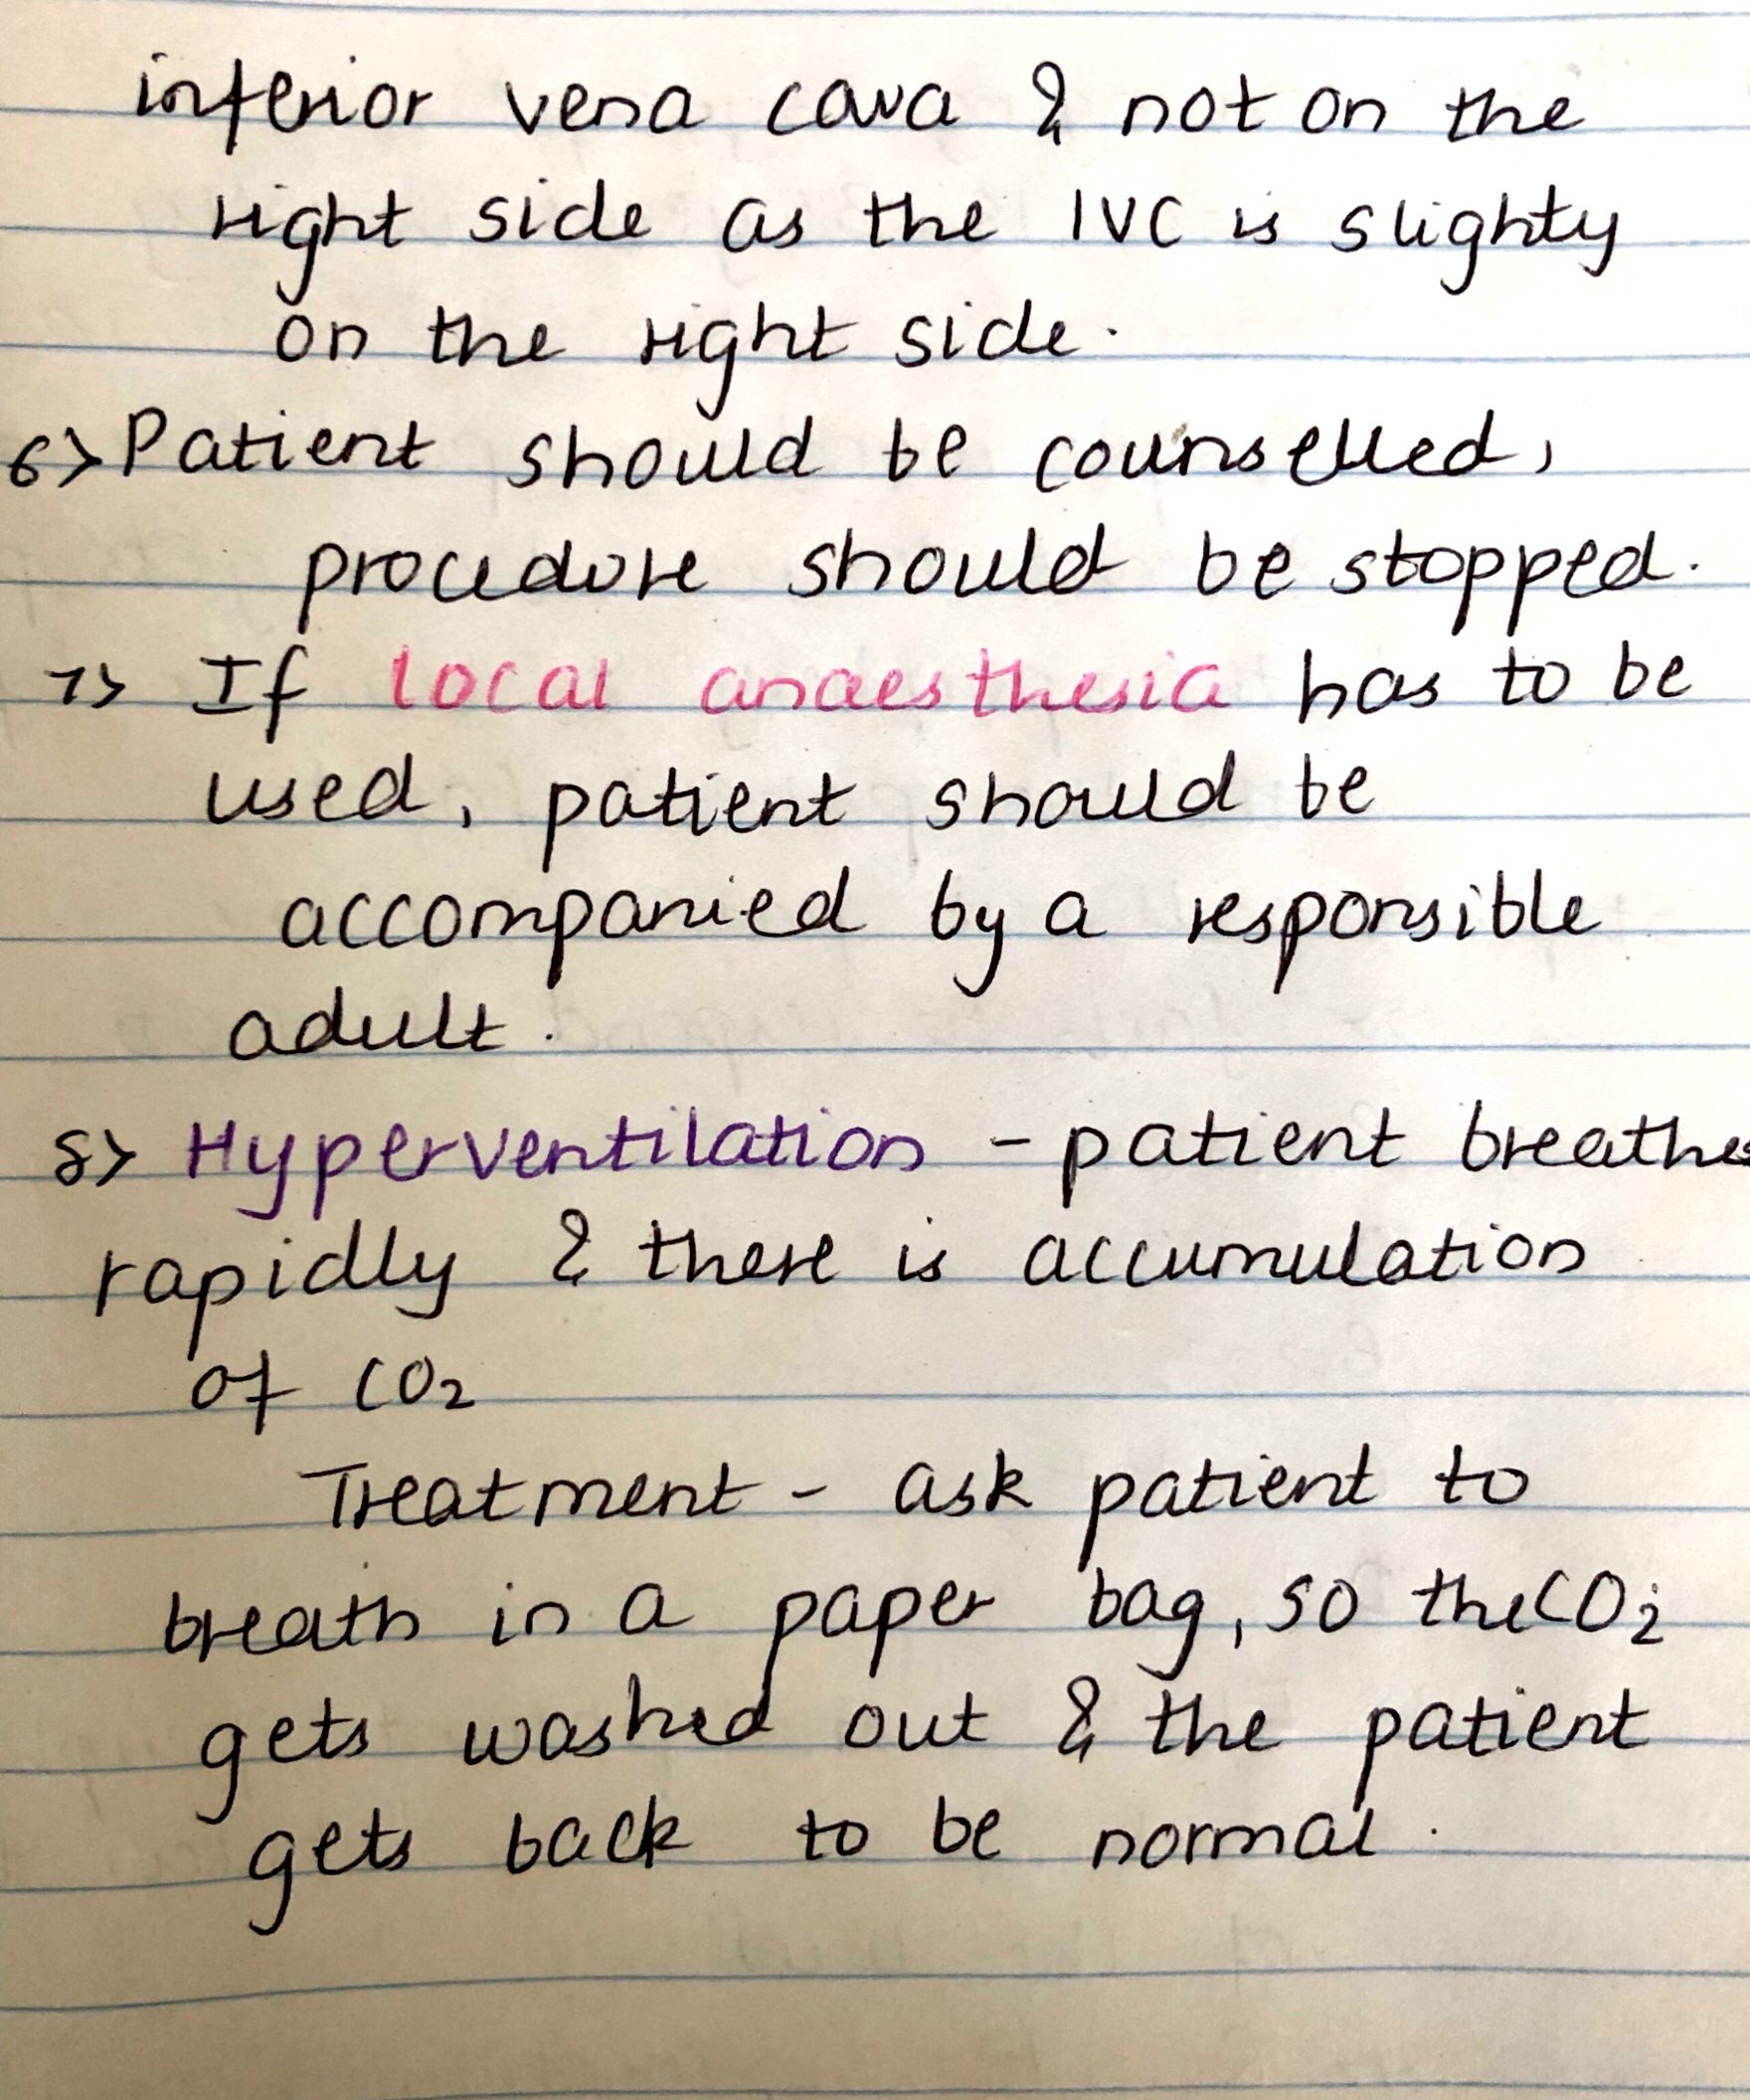 inferior vena cava & not on the
right side as the IVC is slighty
on the right side.
6> Patient should be counselled,
procedure should be stopped.
7> If local anaesthesia has to be
used, patient should be
accompanied by a responsible
adult.
8> Hyperventilation - patient breathes
rapidly & there is accumulation
of CO2
Treatment - ask patient to
breath in a paper bag, so the CO2
gets washed out & the patient
gets back to be normal.